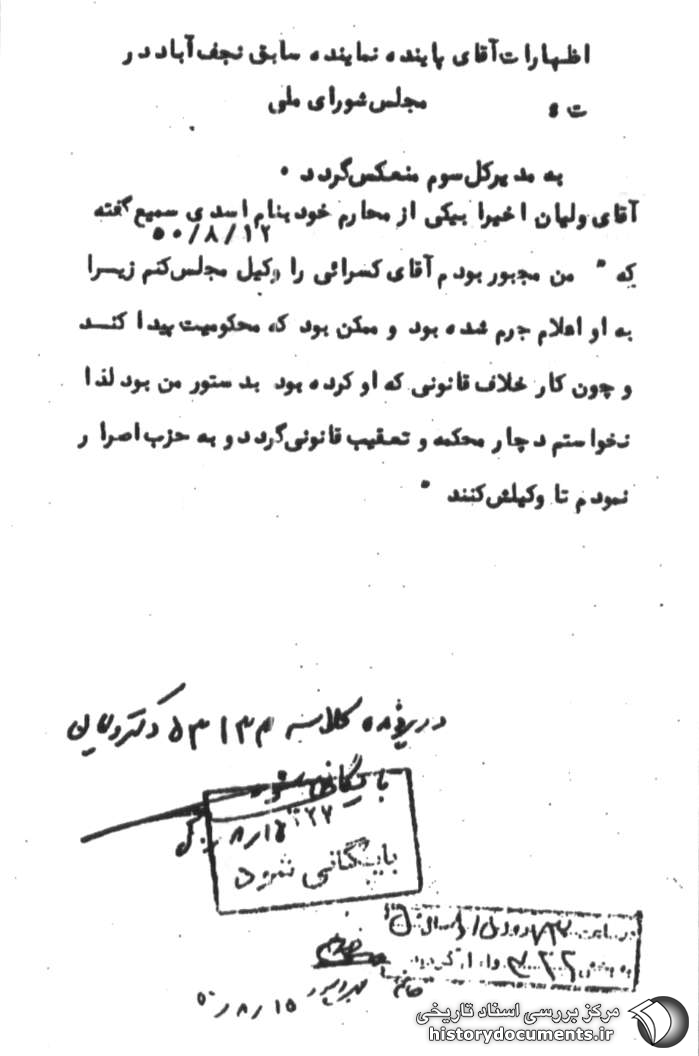 اظهارات آقای پاینده نماینده سابق نجف آباد در
مجلس شورای ملی
به مدیرکل سوم منعکس گردد.
آقای ولیان اخیرا بیکی از محارم خود بنام اسدی سمیع گفته
۵۰/۸/۱۲
که " من مجبور بودم آقای کسرائی را وکیل مجلس کنم زیرا
به او اعلام جرم شده بود و ممکن بود که محکومیت پیدا کند
و چون کار خلاف قانونی که او کرده بود بدستور من بود لذا
نخواستم دچار محکمه و تعقیب قانونی گردد و به حزب اصرار
نمودم تا وکیلش کنند "
در پرونده کلاسه دکتر ولیان
بایگانی شود
۸/۱۵
بایگانی شود
۵۰/۸/۱۵
مرکز بررسی اسناد تاریخی
historydocuments.ir